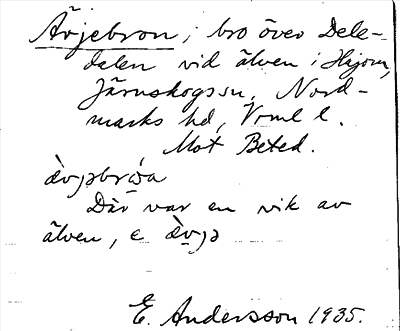 Ävjebron, bro över Dele-
dalen vid älven i Hajom,
Järnskogssn, Nord-
marks hd, Vrml l.
Mot Beted.
ə̀vjəbrɷ́a
Där var en vik av
älven, e ə̀vjə
E. Andersson 1935.